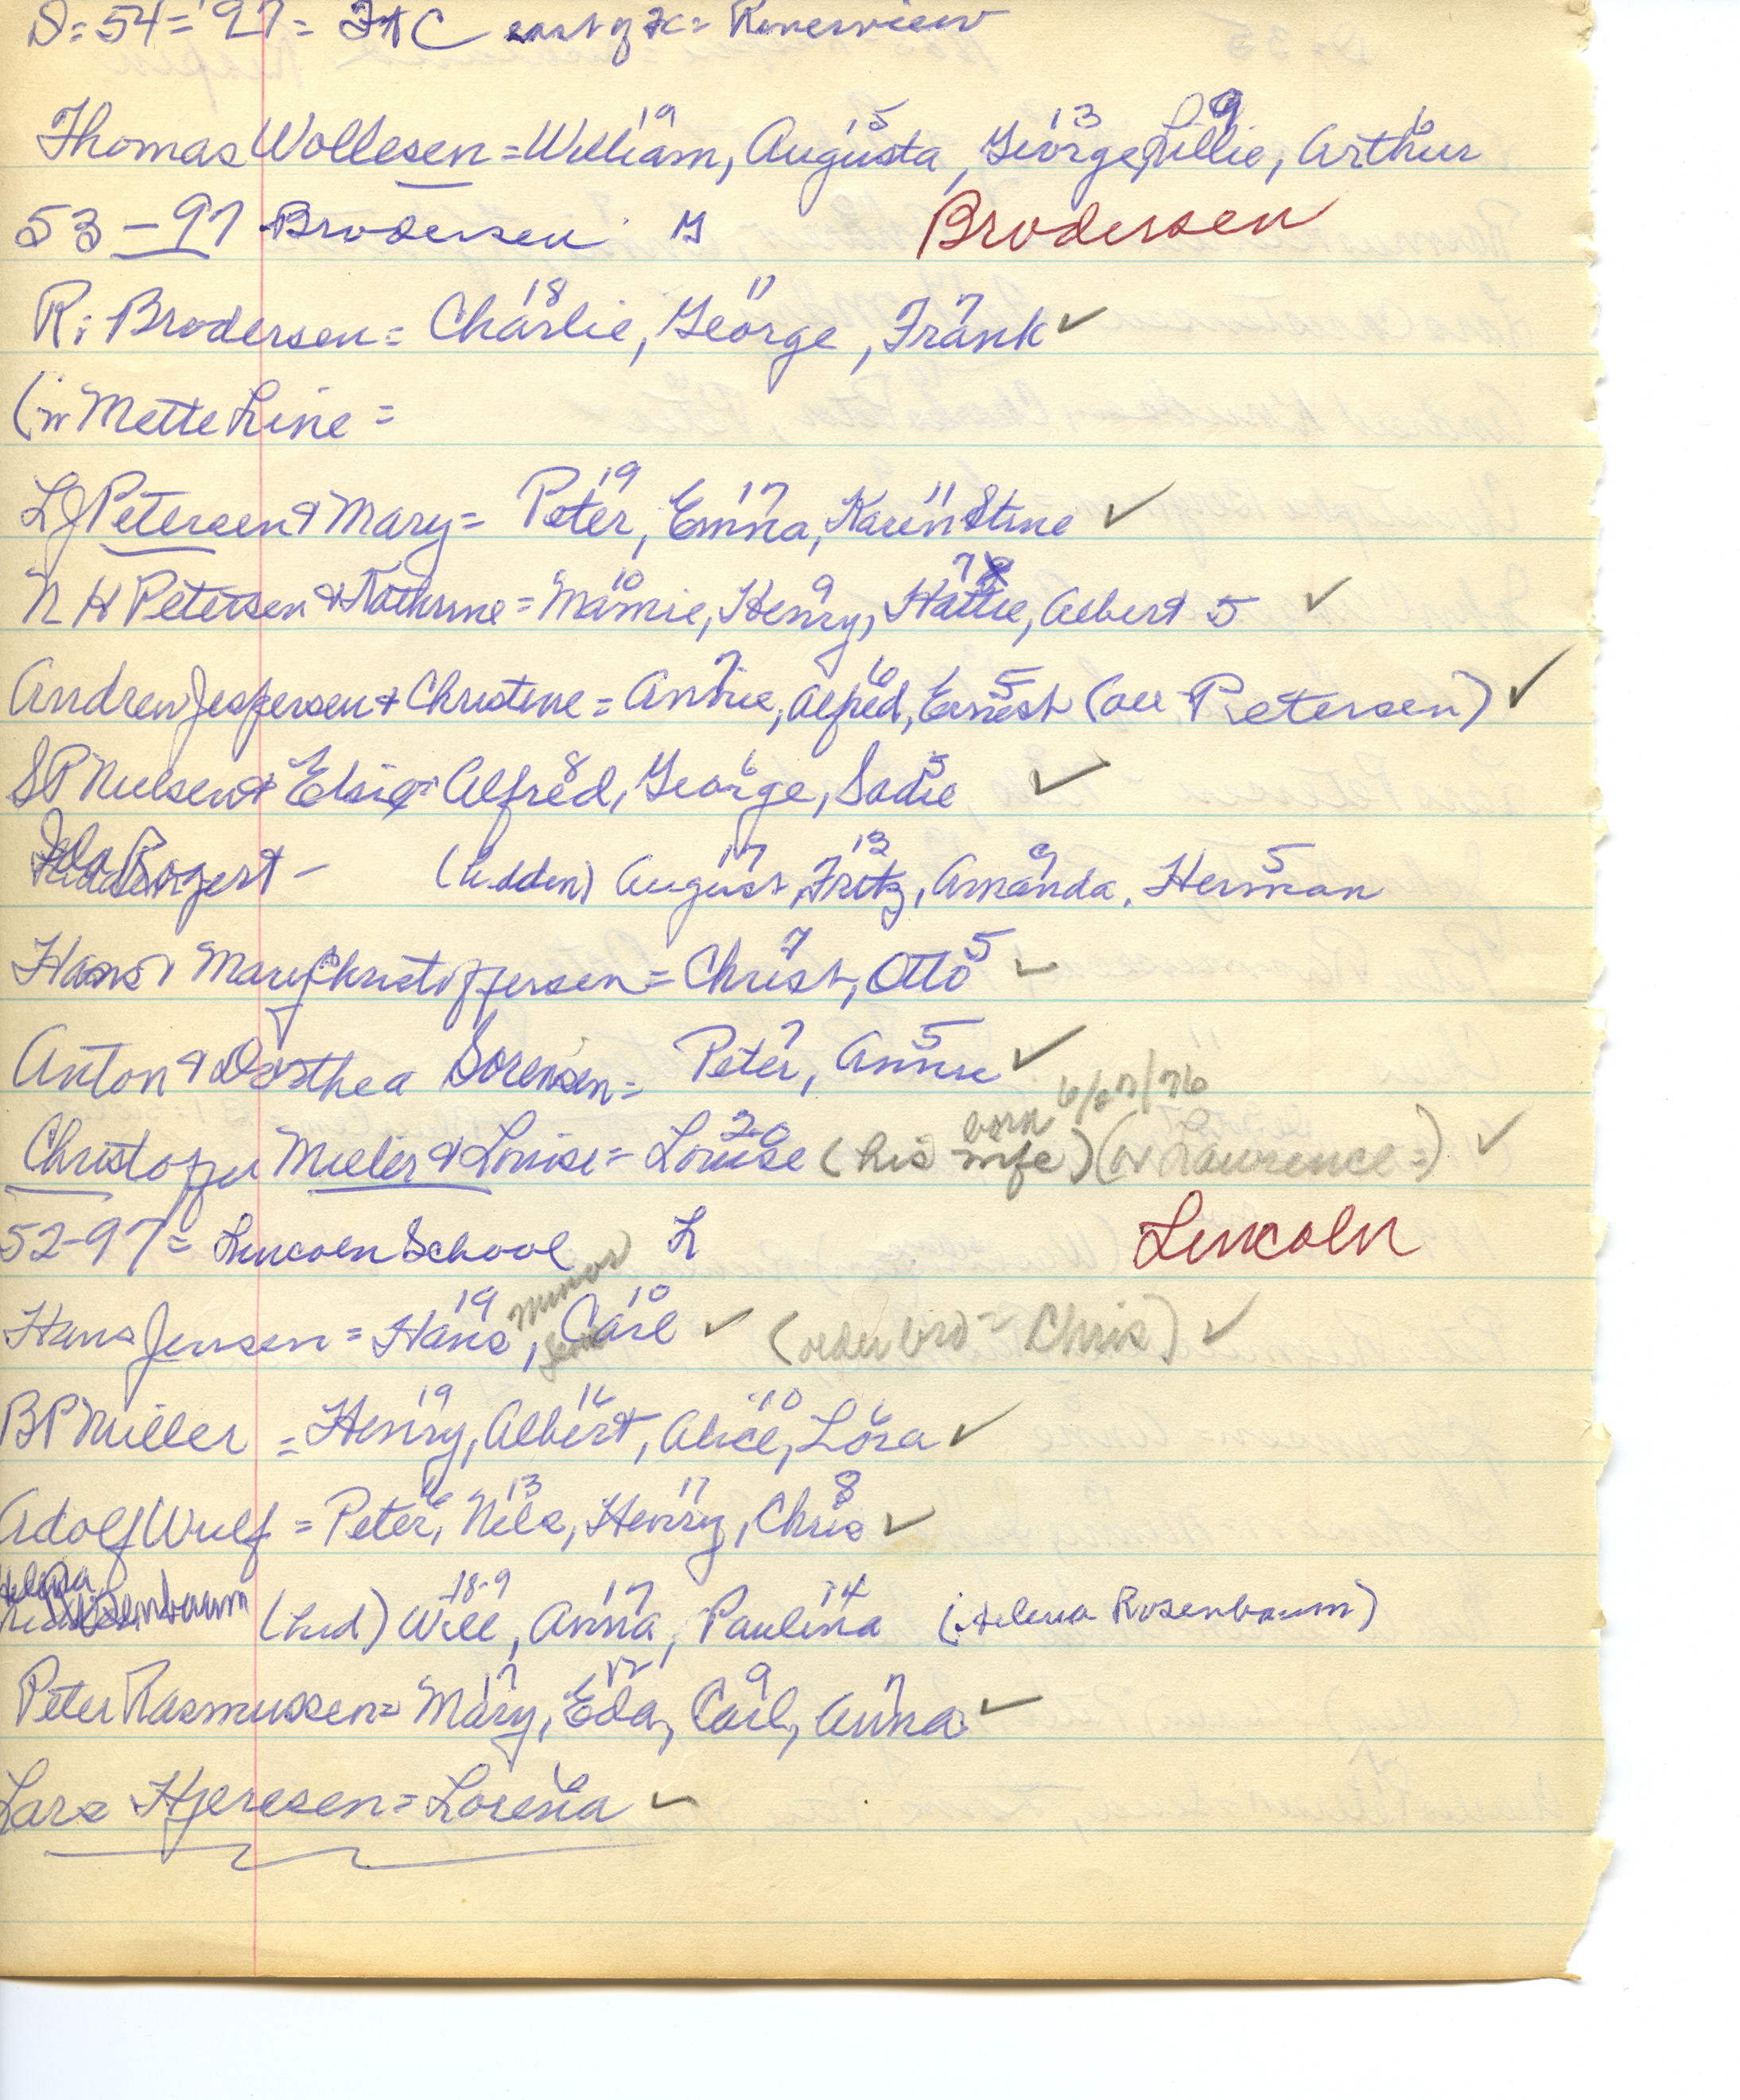 D = 54 = '97 = east of = Riverview
19 15 13 9 6
Thomas Wollesen = William, Augusta, George, Lillie, Arthur
53 - 97 Brodersen Brodersen
18 11 7
R. Brodersen = Charlie, George, Frank ✓
(in Mette Line =
19 17 11
L J Petersen + Mary = Peter, Emma, Karen Stine ✓
10 9 7
N H Petersen + Kathrine = Mamie, Henry, Hattie, Albert 5 ✓
7 6 5
Andrew Jespersen + Christine = Annie, Alfred, Ernest (all Petersen) ✓
8 6 5
S P Nielsen + Elsie = Alfred, George, Sadie ✓
17 13 9 5
Ida Bogert - (widden) August, Fritz, Amanda, Herman
7 5
Hans + Mary Christoffersen = Christ, Otto ✓
7 5
Anton + Dorthea Sorensen = Peter, Annie ✓
20 born 6/27/76
Christoffer Mieler + Louise = Louise (his wife) (or Lawrence =) ✓
52-97 = Lincoln School L Lincoln
19 minor 10
Hans Jensen = Hans, Carl ✓ (older bro = Chris) ✓
19 16 10 6
B P Miller = Henry, Albert, Alice, Lora ✓
16 13 11 8
Adolf Wulf = Peter, Nels, Henry, Chris ✓
18-9 17 14
Helena Rosenbaum (wid) Will, Anna, Paulina (Helena Rosenbaum)
17 12 9 7
Peter Rasmussen = Mary, Eda, Carl, Anna ✓
6
Lars Hjeresen = Lorena ✓